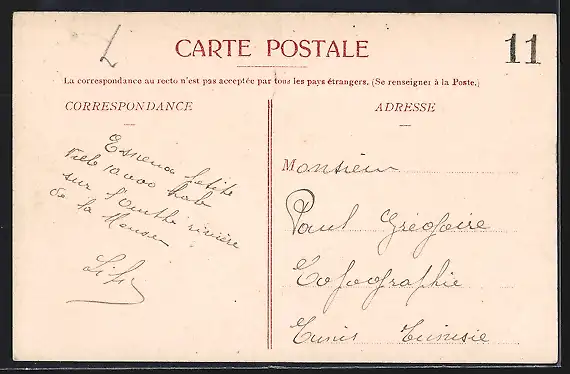 CARTE POSTALE
11
La correspondance au recto n'est pas acceptée par tous les pays étrangers. (Se renseigner à la Poste.)
CORRESPONDANCE
ADRESSE
petite
10.000 hab
sur l'Ourthe rivière
de la Meuse
Monsieur
Paul Grégoire
Topographie
Tunis Tunisie